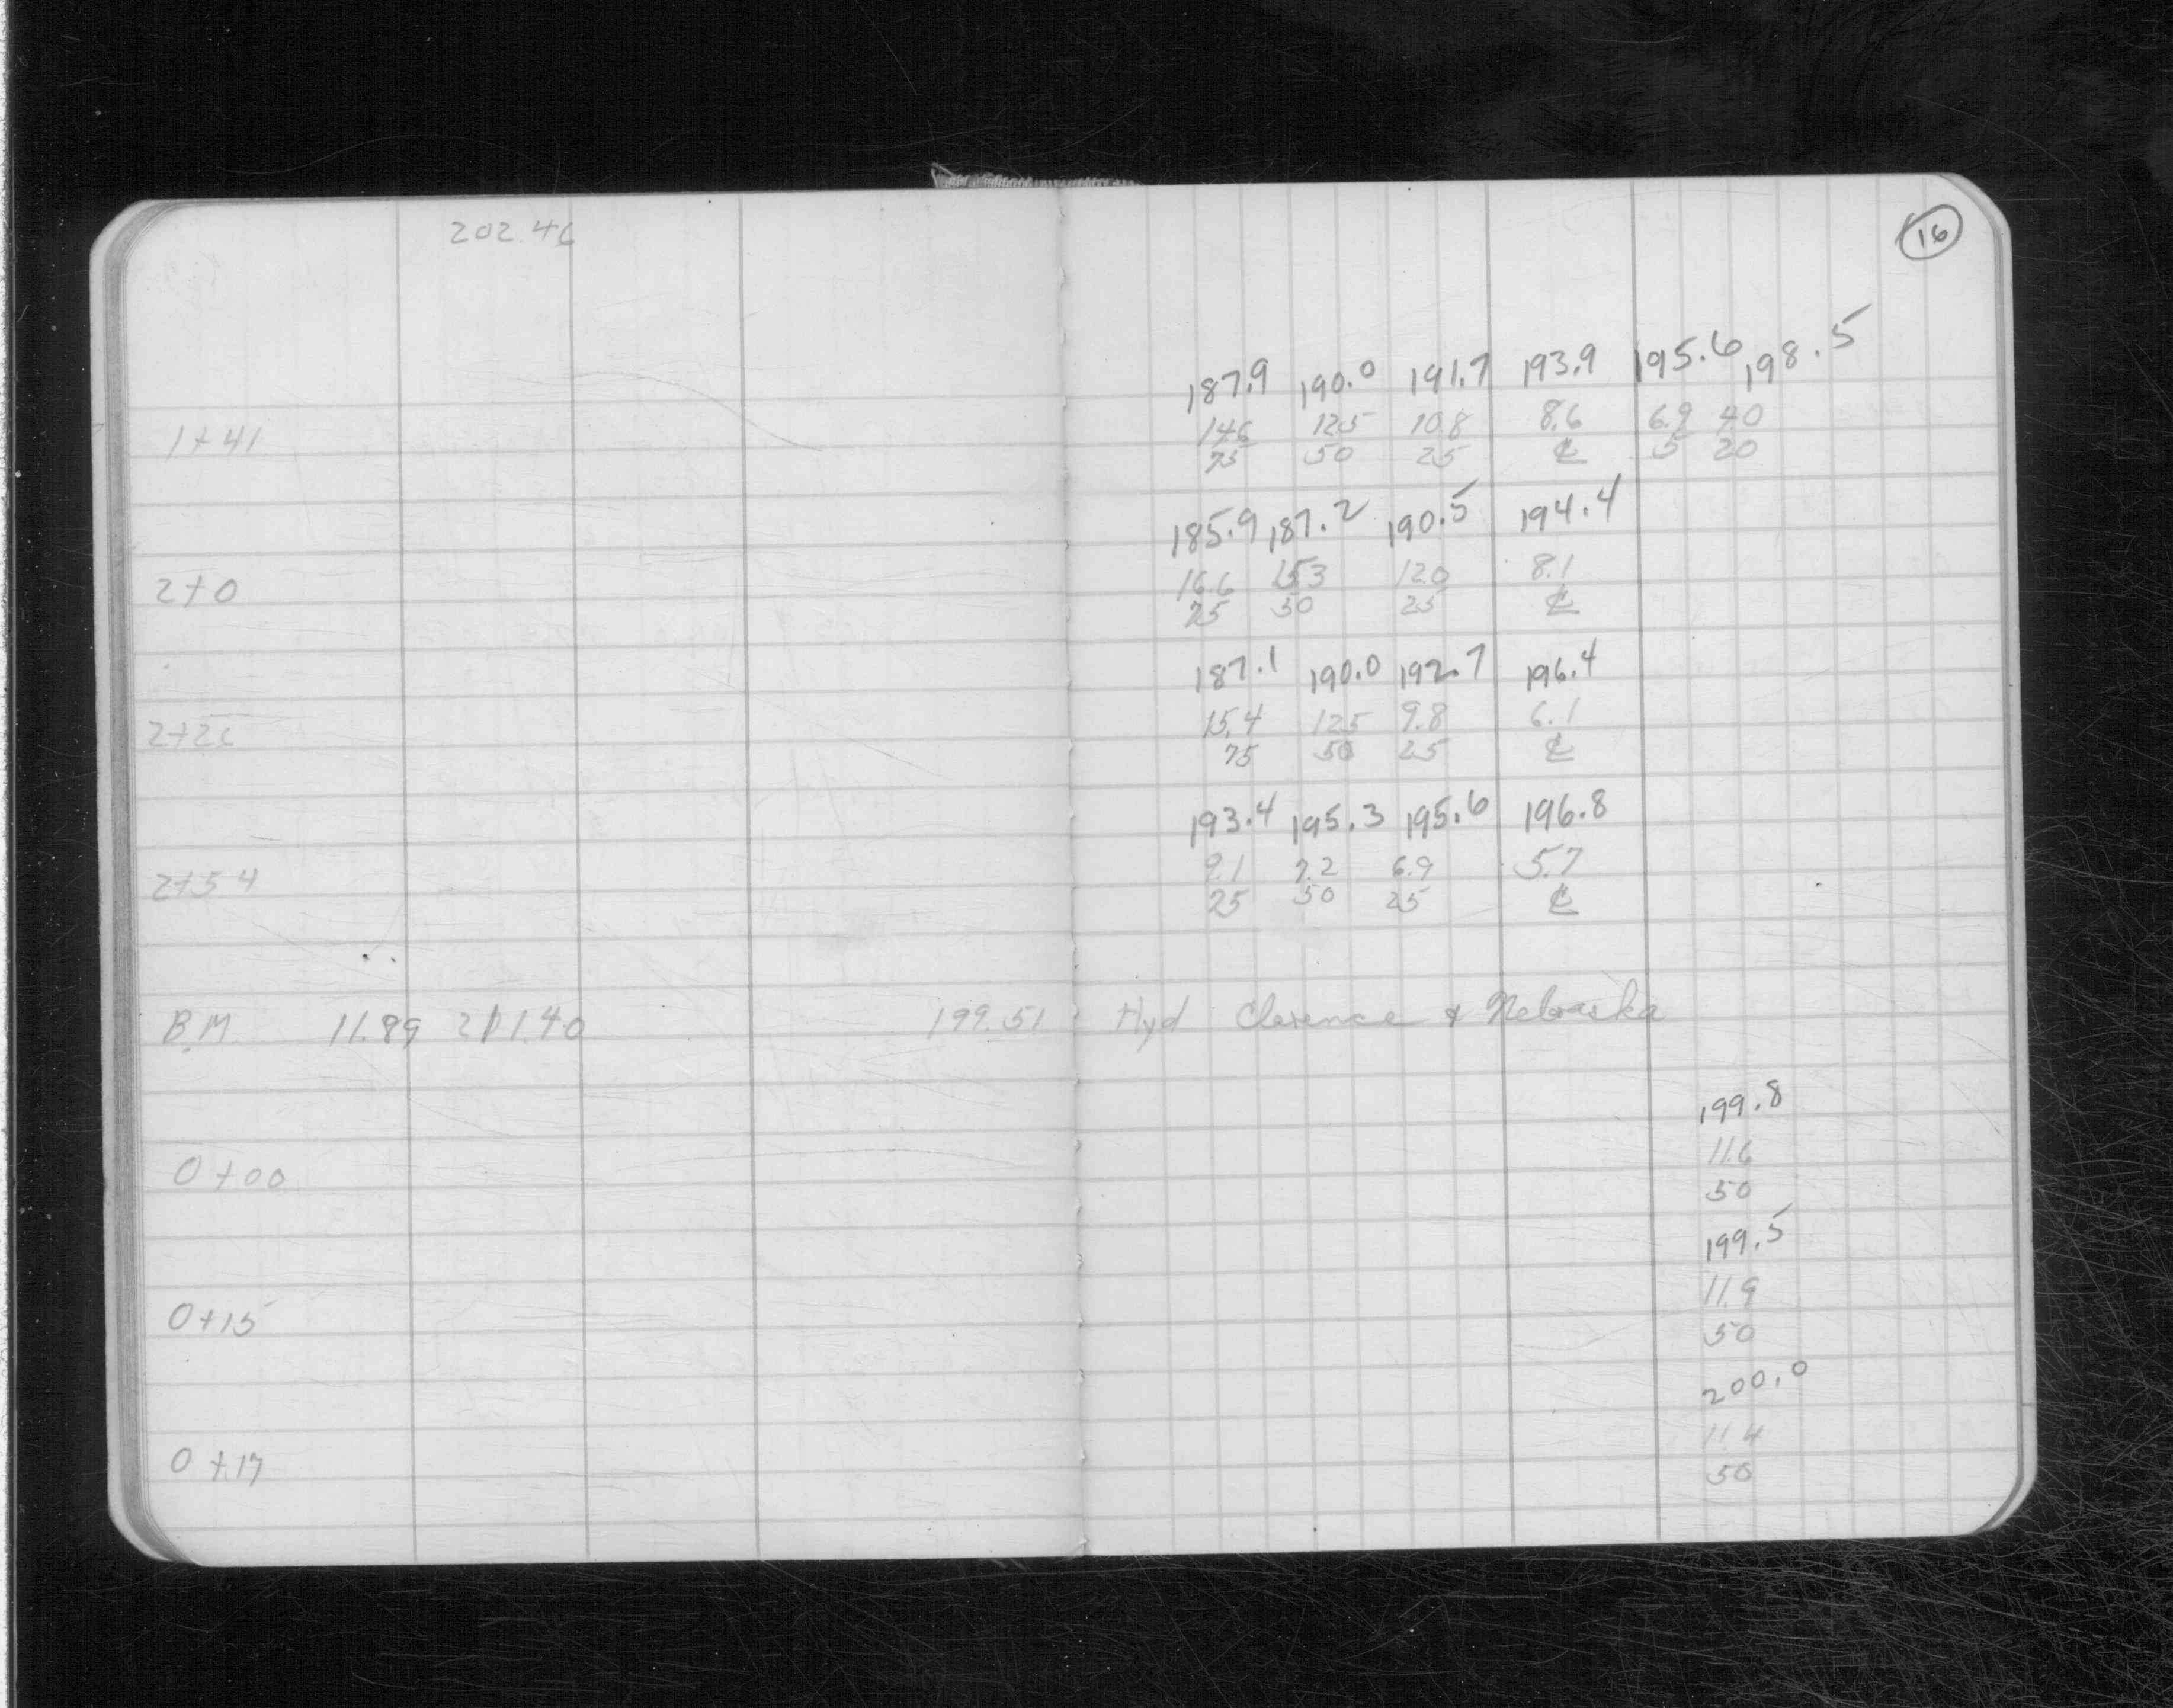 202.46
16
187.9 190.0 191.7 193.9 195.6 198.5
1+41 14.6 12.5 10.8 8.6 6.9 4.0
75 50 25 ℄ 5 20
185.9 187.2 190.5 194.4
2+0 16.6 15.3 12.0 8.1
75 50 25 ℄
187.1 190.0 192.7 196.4
2+26 15.4 12.5 9.8 6.1
75 50 25 ℄
193.4 195.3 195.6 196.8
2+54 9.1 7.2 6.9 5.7
75 50 25 ℄
B.M. 11.89 211.40 199.51 Hyd Clarence & Nebraska
199.8
0+00 11.6
50
199.5
0+15 11.9
50
200.0
0+17 11.4
50